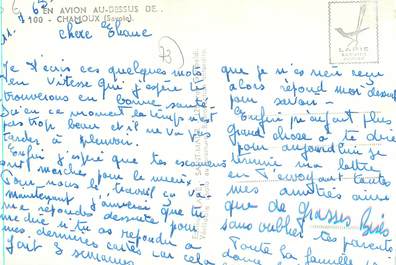 EN AVION AU-DESSUS DE...
100 - CHAMOUX (Savoie).
LAPIE
chere
Je t'écris ces quelques mots
en vitesse qui j'espère te
trouverons en bonne santé
qu'en ce moment le temps n'est
pas trop beau et il ne va pas
tarder à pleuvoir.
Enfin j'espère que tes examens
ont marchés pour le mieux
Pour nous le travail ça va
maintenant j'aimerai que tu
me répondes dessuite pour
me dire si tu as repondu a
mes dernières cartes car cela
fait 3 semaines
que je n'ai rien reçu
alors répond moi dessuite
pour savoir -
Enfin plus
grand chose a te dire
pour aujourd'hui je
termine ma lettre
en t'envoyant toutes
mes amitiés ainsi
que de Grosses Bises
sans oublier tes parents.
Toute la famille